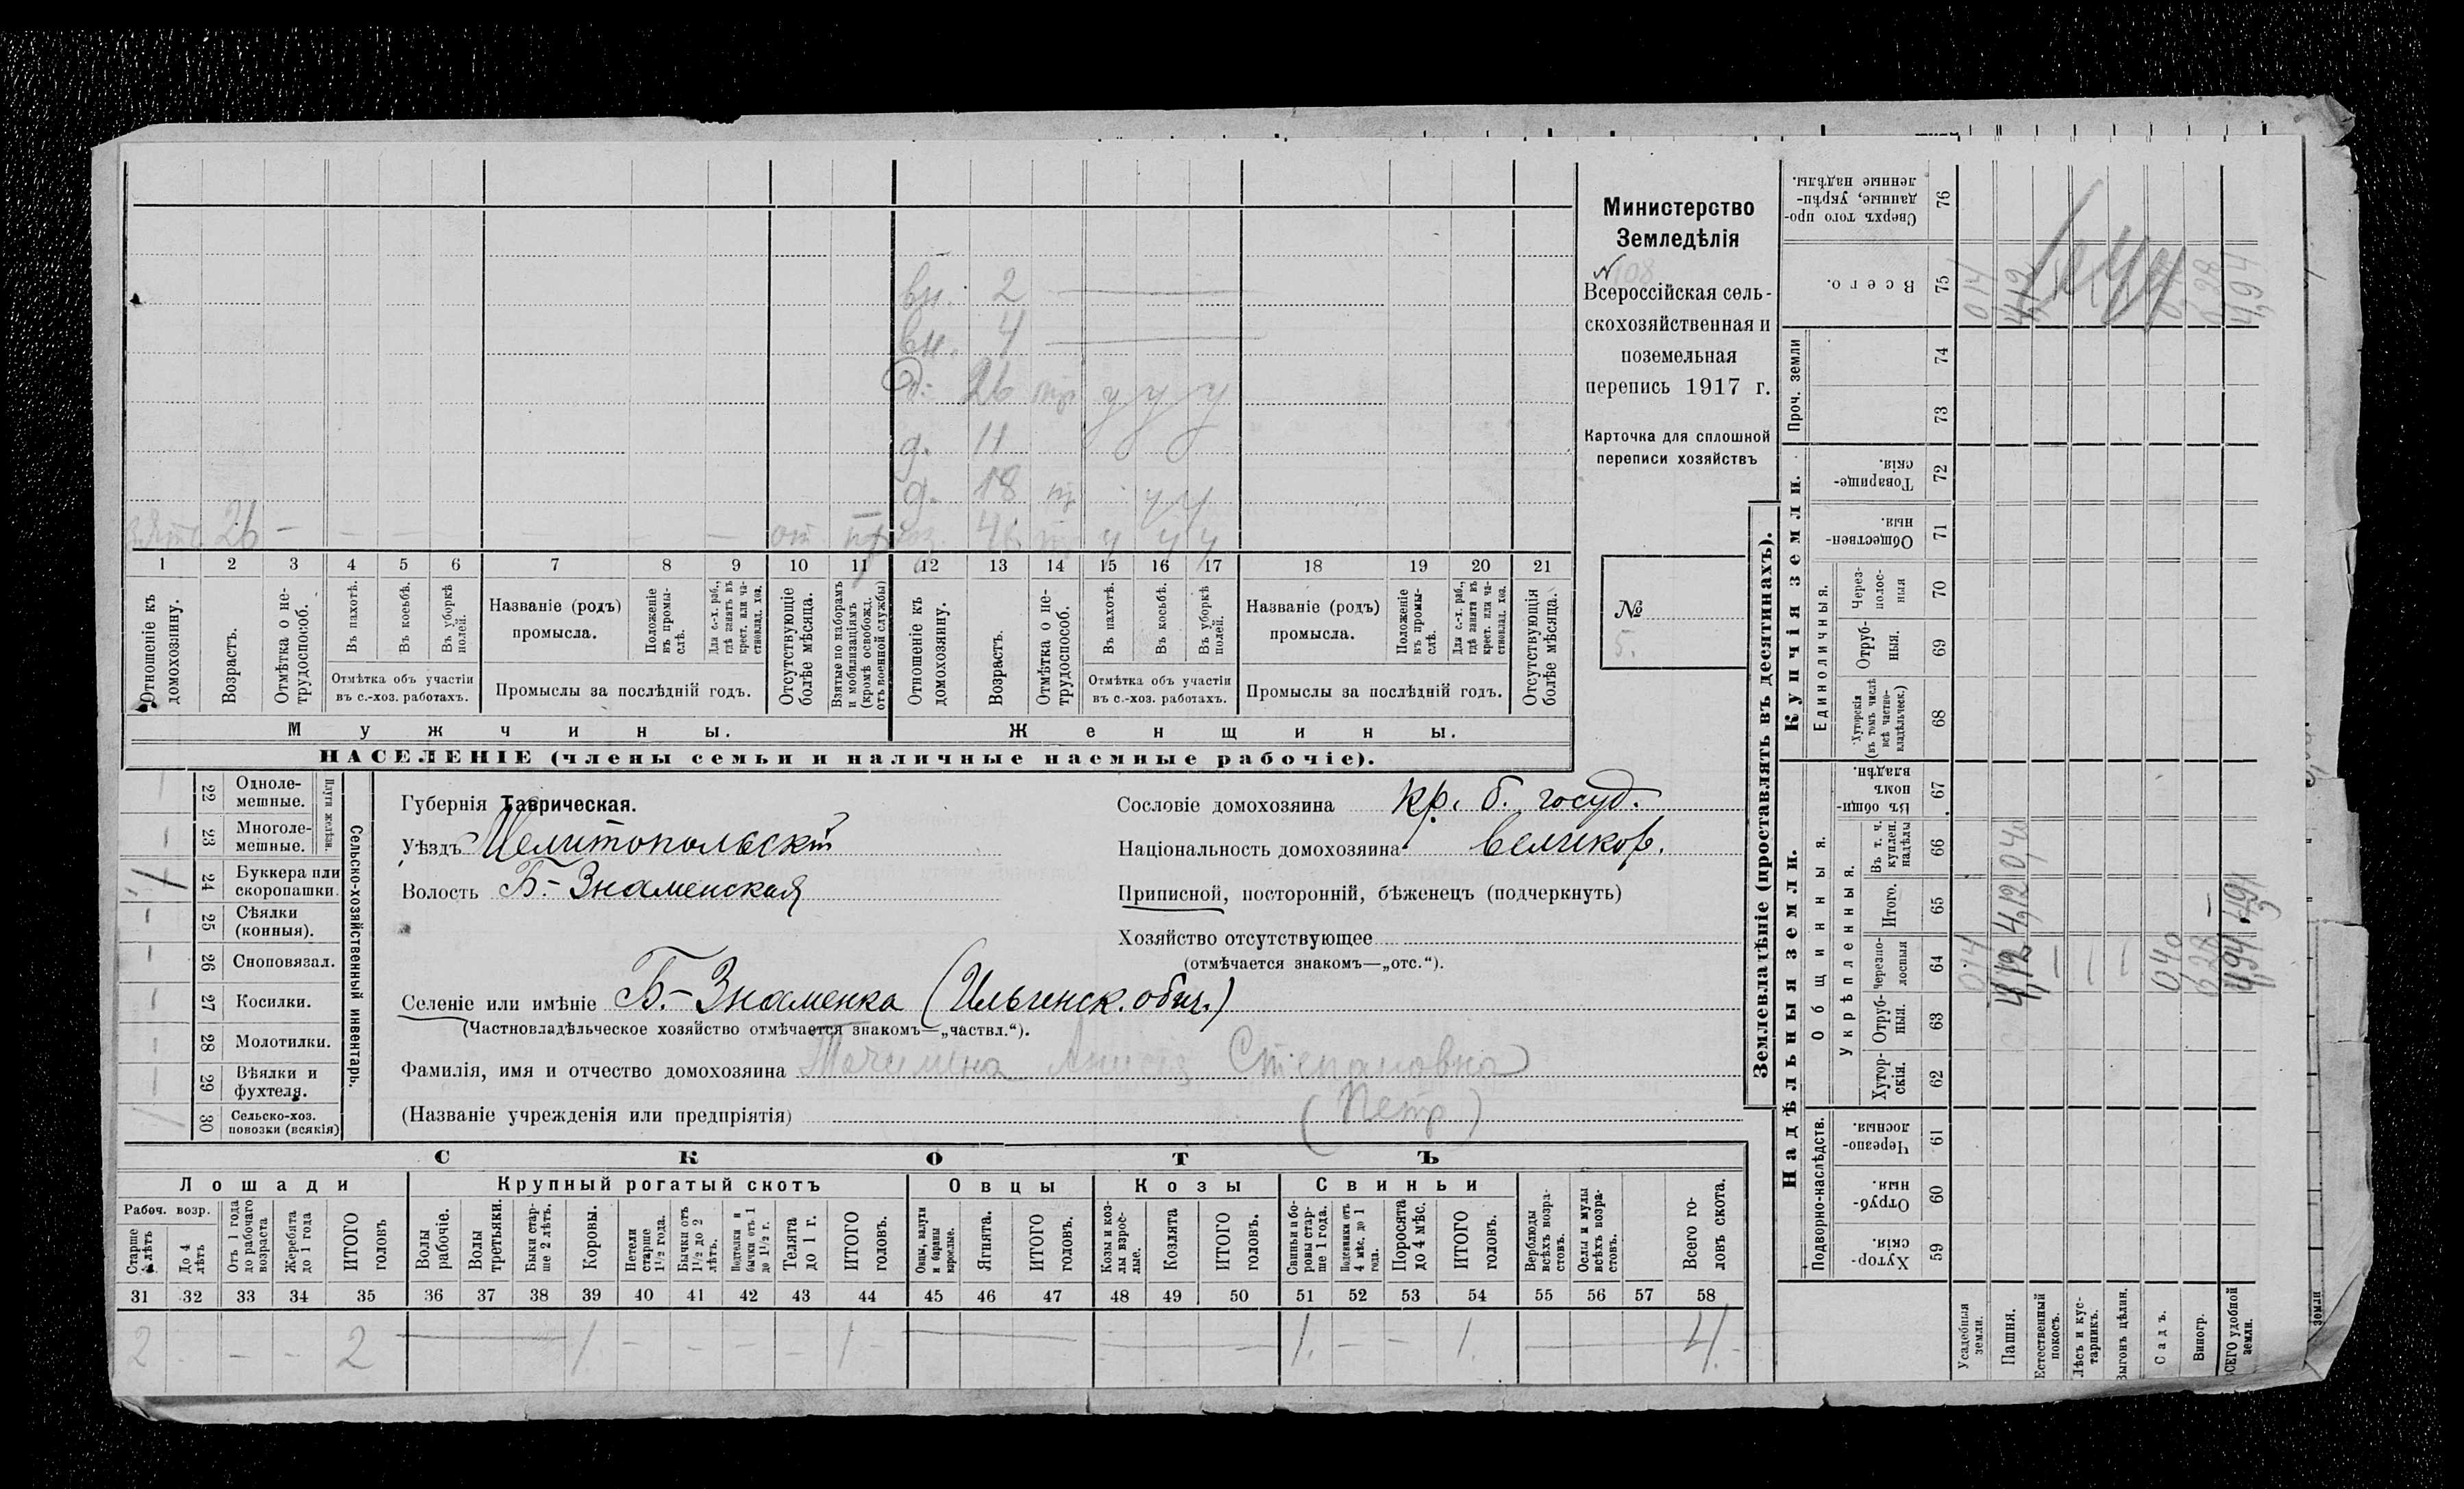 Министерство
Земледѣлія
№ 108
Всероссійская сель-
скохозяйственная и
поземельная
перепись 1917 г.
Карточка для сплошной
переписи хозяйствъ
№
5.
вн. 2
вн. 4
д. 26 тр у у у
д. 11
д. 18 тр у у
зять 26 — — — — — — — от. 46 тр у у у
1 2 3 4 5 6 7 8 9 10 11 12 13 14 15 16 17 18 19 20 21
Отношеніе къ домохозяину.
Возрастъ.
Отмѣтка о не-трудоспособ.
Въ пахотѣ.
Въ косьбѣ.
Въ уборкѣ полей.
Отмѣтка объ участіи въ с.-хоз. работахъ.
Названіе (родъ) промысла.
Положеніе въ промы-слѣ.
Для с.-х. раб., гдѣ занятъ въ крест. или ча-стновлад. хоз.
Промыслы за послѣдній годъ.
Отсутствующіе болѣе мѣсяца.
Взятые по наборамъ и мобилизаціямъ (кромѣ освобожд. отъ военной службы)
Отношеніе къ домохозяину.
Возрастъ.
Отмѣтка о не-трудоспособ.
Въ пахотѣ.
Въ косьбѣ.
Въ уборкѣ полей.
Отмѣтка объ участіи въ с.-хоз. работахъ.
Названіе (родъ) промысла.
Положеніе въ промы-слѣ.
Для с.-х. раб., гдѣ занята въ крест. или ча-стновлад. хоз.
Промыслы за послѣдній годъ.
Отсутствующія болѣе мѣсяца.
Мужчины. Женщины.
НАСЕЛЕНІЕ (члены семьи и наличные наемные рабочіе).
Сельско-хозяйственный инвентарь.
Плуги желѣзн.
22 Одноле-мешные.
23 Многоле-мешные.
24 Буккера или скоропашки.
25 Сѣялки (конныя).
26 Сноповязал.
27 Косилки.
28 Молотилки.
29 Вѣялки и фухтеля.
30 Сельско-хоз. повозки (всякія)
Губернія Таврическая.
Уѣздъ Мелитопольскій
Волость Б.-Знаменская
Сословіе домохозяина кр. б. госуд.
Національность домохозяина великор.
Приписной, посторонній, бѣженецъ (подчеркнуть)
Хозяйство отсутствующее
(отмѣчается знакомъ—„отс.“).
Селеніе или имѣніе Б.-Знаменка (Ильинск. общ.)
(Частновладѣльческое хозяйство отмѣчается знакомъ—„частвл.“).
Фамилія, имя и отчество домохозяина Точилина Анисія Степановна
(Названіе учрежденія или предпріятія) (Петр)
СКОТЪ
Лошади Крупный рогатый скотъ Овцы Козы Свиньи
Рабоч. возр.
Старше 4 лѣтъ
До 4 лѣтъ
Отъ 1 года до рабочаго возраста
Жеребята до 1 года
ИТОГО головъ
Волы рабочіе.
Волы третьяки.
Быки стар-ше 2 лѣтъ.
Коровы.
Нетели старше 1½ года.
Бычки отъ 1½ до 2 лѣтъ.
Подтелки и бычки отъ 1 до 1½ г.
Телята до 1 г.
ИТОГО головъ.
Овцы, валухи и бараны взрослые.
Ягнята.
ИТОГО головъ.
Козы и коз-лы взрос-лые.
Козлята
ИТОГО головъ.
Свиньи и бо-ровы стар-ше 1 года.
Подсвинки отъ 4 мѣс. до 1 года.
Поросята до 4 мѣс.
ИТОГО головъ.
Верблюды всѣхъ возра-стовъ.
Ослы и мулы всѣхъ возра-стовъ.
Всего го-ловъ скота.
31 32 33 34 35 36 37 38 39 40 41 42 43 44 45 46 47 48 49 50 51 52 53 54 55 56 57 58
2 - - - 2 — 1 - - - - 1 - — — 1. - - 1. — 4.
Землевладѣніе (проставлять въ десятинахъ).
Надѣльныя земли.
Купчія земли.
Проч. земли
Подворно-наслѣдств.
Общинныя.
Укрѣпленныя.
Единоличныя.
Хутор-скія. 59
Отруб-ныя. 60
Черезпо-лосныя. 61
Хутор-скія. 62
Отруб-ныя. 63
Черезпо-лосныя 64
Итого. 65
Въ т. ч. куплен. надѣлы 66
Въ общи-номъ владѣн. 67
Хуторскія (въ томъ числѣ всѣ частно-владѣльческ.) 68
Отруб-ныя. 69
Через-полос-ныя 70
Обществен-ныя. 71
Товарище-скія. 72
73
74
Всего. 75
Сверхъ того про-данные, укрѣп-ленные надѣлы. 76
Усадебныя земли. 0,14 0,14
Пашня. 4,12 4,12 0,40 4,12
Естественный покосъ.
Лѣсъ и кус-тарникъ.
Выгонъ цѣлин.
Садъ. 0,40
Виногр. 0,28 0,28
ВСЕГО удобной земли. 4,94 4,94 4,94
земли